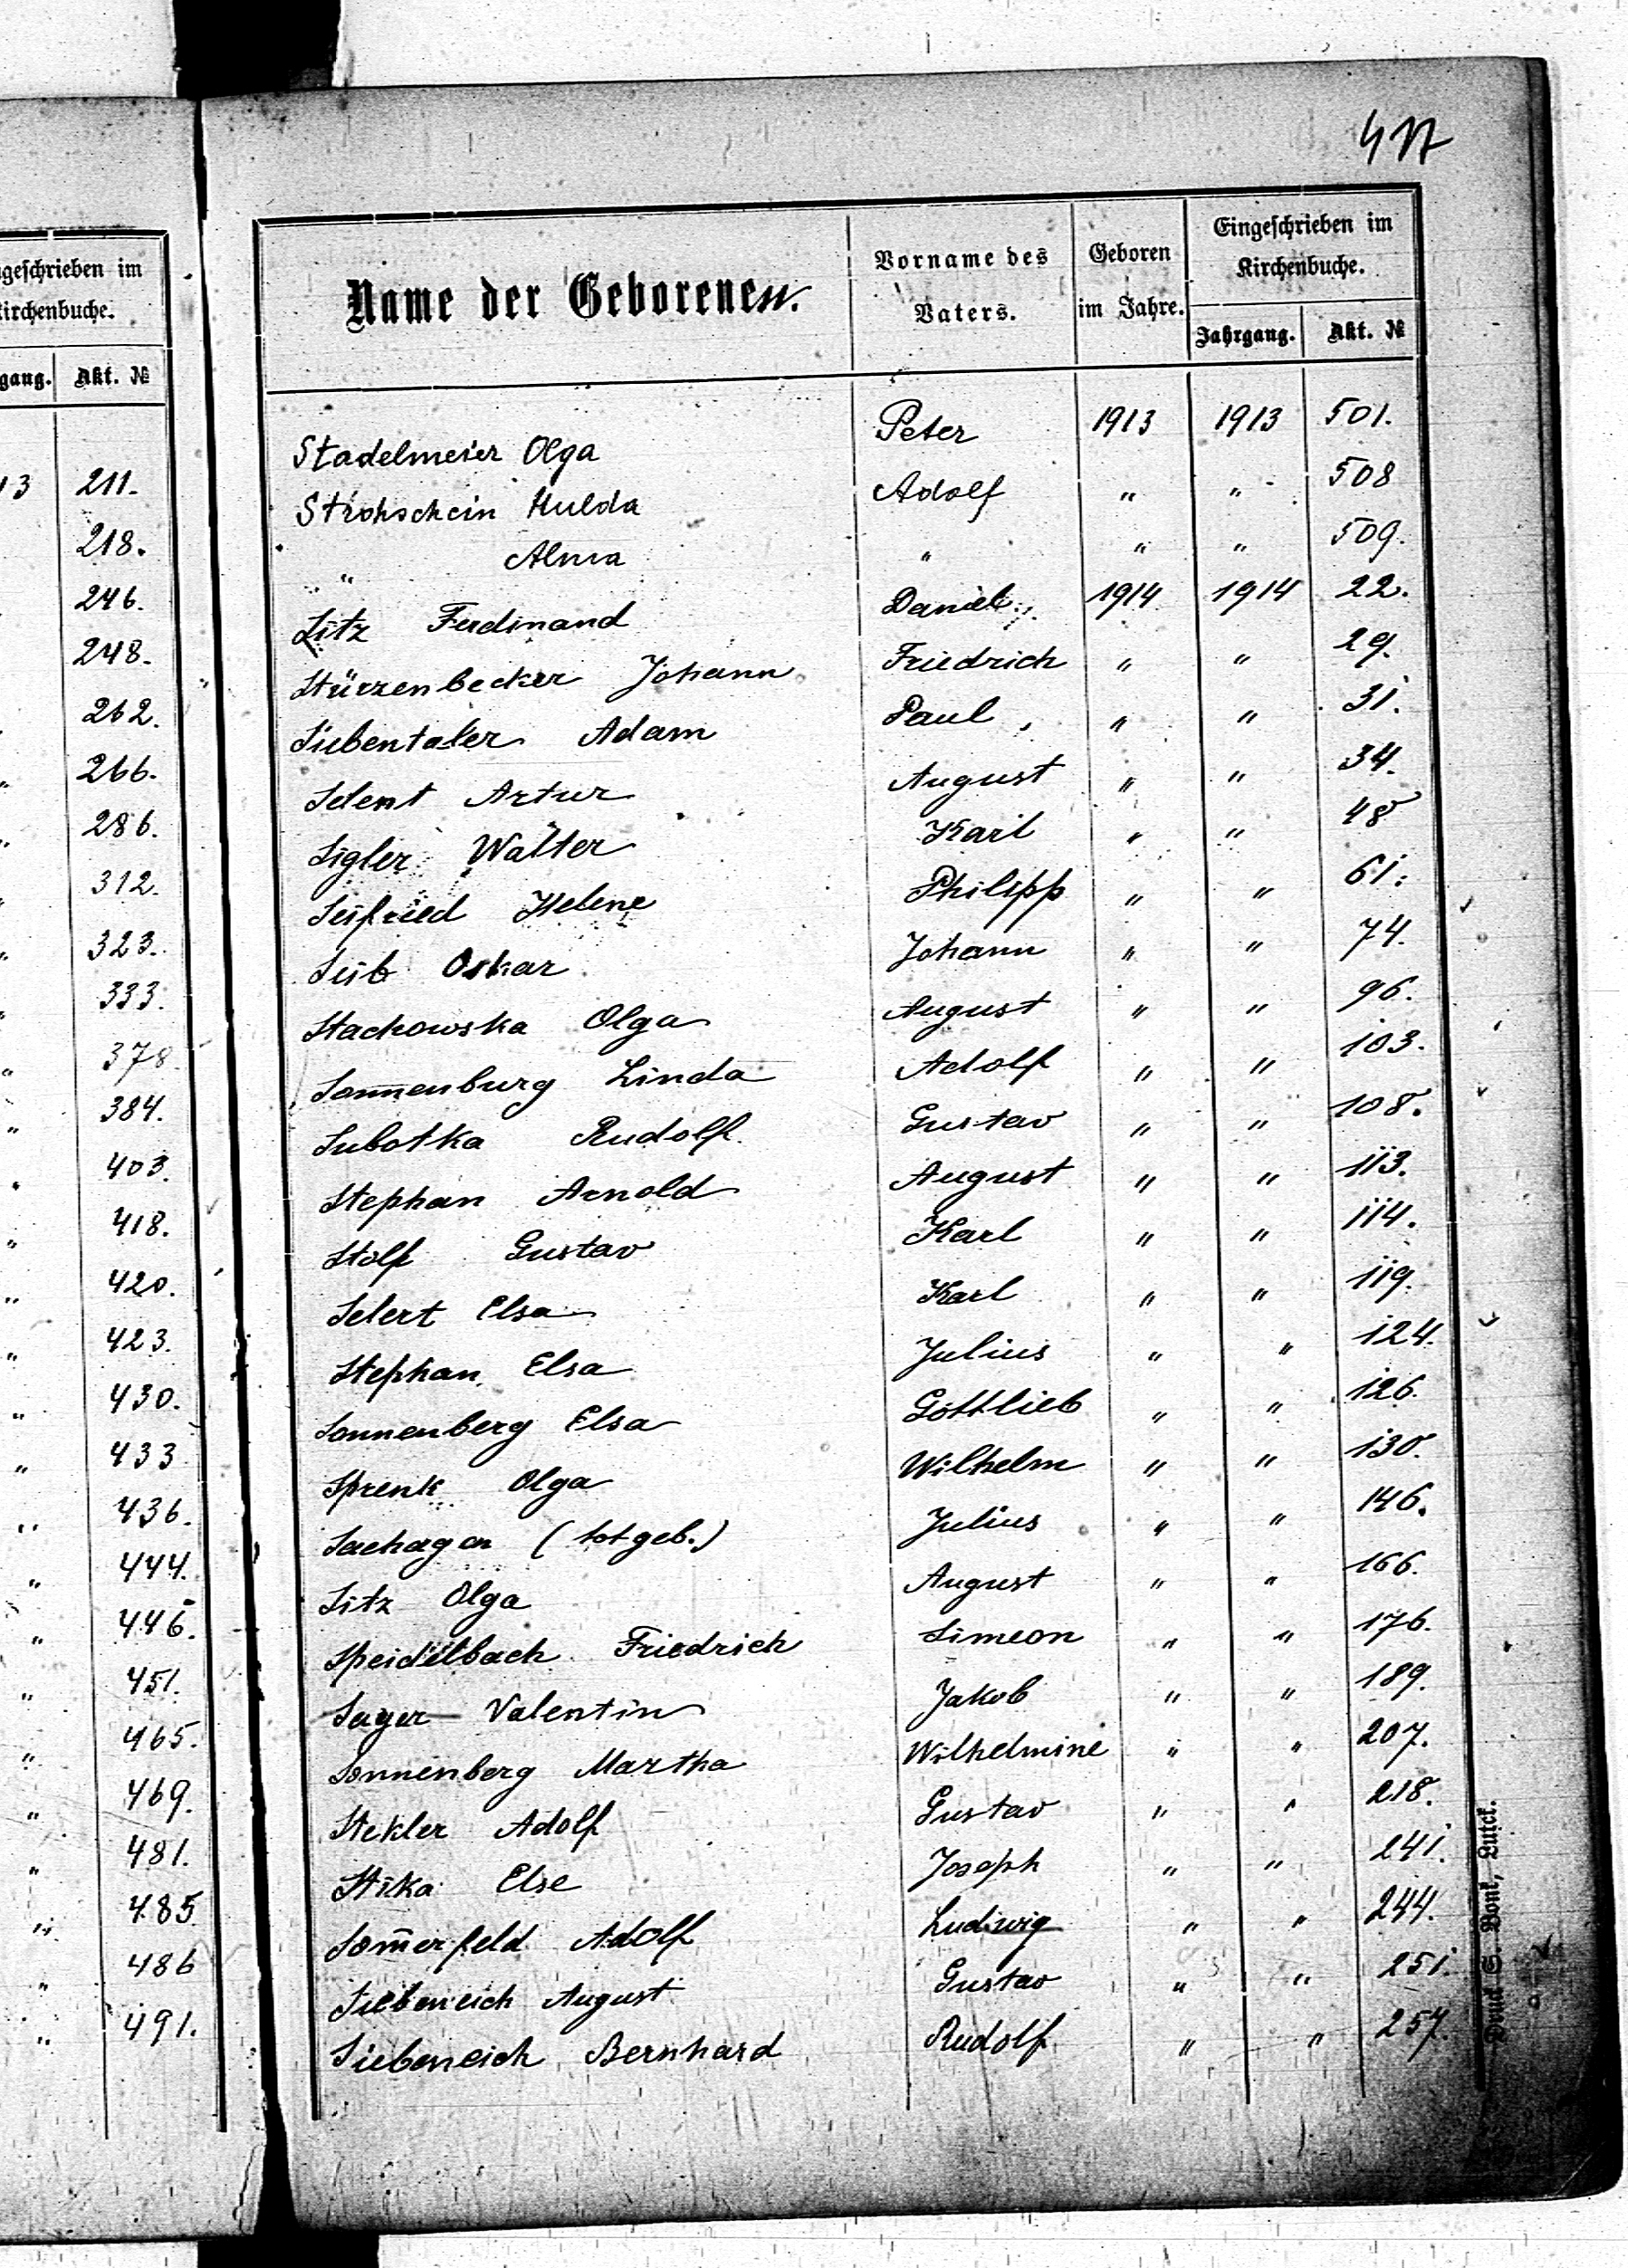 477
geschrieben im
Kirchenbuche.
gang. Akt. №
13 211.
218.
246.
248.
262.
" 266.
" 286.
" 312.
" 323.
" 333.
" 378.
" 384.
" 403.
" 418.
" 420.
" 423.
" 430.
" 433
" 436.
" 444.
" 446.
" 451.
" 465.
" 469.
" 481.
" 485
" 486
" 491.
Name der Geborenen. Vorname des Vaters. Geboren im Jahre. Eingeschrieben im Kirchenbuche.
Jahrgang. Akt. №
Stadelmeier Olga Peter 1913 1913 501.
Strohschein Hulda Adolf " " 508
" Alma " " " 509.
Sitz Ferdinand Daniel 1914 1914 22.
Stürzenbecker Johann Friedrich " " 29.
Siebentaler Adam Paul " " 31.
Selent Artur August " " 34.
Sigler Walter Karl " " 48
Seifried Helene Philipp " " 61.
Seib Oskar Johann " " 74.
Stachowska Olga August " " 96.
Sonnenburg Linda Adolf " " 103.
Subotka Rudolf Gustav " " 108.
Stephan Arnold August " " 113.
Stolf Gustav Karl " " 114.
Selert Elsa Karl " " 119.
Stephan Elsa Julius " " 124.
Sonnenberg Elsa Gottlieb " " 126.
Sprenk Olga Wilhelm " " 130.
(totgeb.) Julius " " 146.
Sitz Olga August " " 166.
Speidelbach Friedrich Simeon " " 176.
Sayer Valentin Jakob " " 189.
Sonnenberg Martha Wilhelmine " " 207.
Stekler Adolf Gustav " " 218.
Stika Else Joseph " " 241.
Som̅erfeld Adolf Ludwig " " 244.
Siebeneich August Gustav " " 251.
Siebeneich Bernhard Rudolf " " 257.